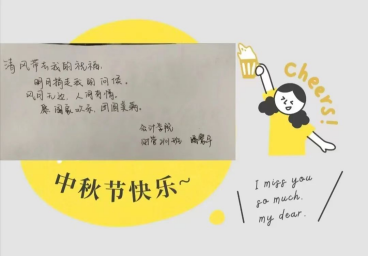 清风带去我的祝福,
明月捎走我的问候,
风月无边, 人间有情,
愿 阖家欢乐, 团圆美满。
会计学院
Cheers!
中秋节快乐~
I miss you
so much,
my dear.